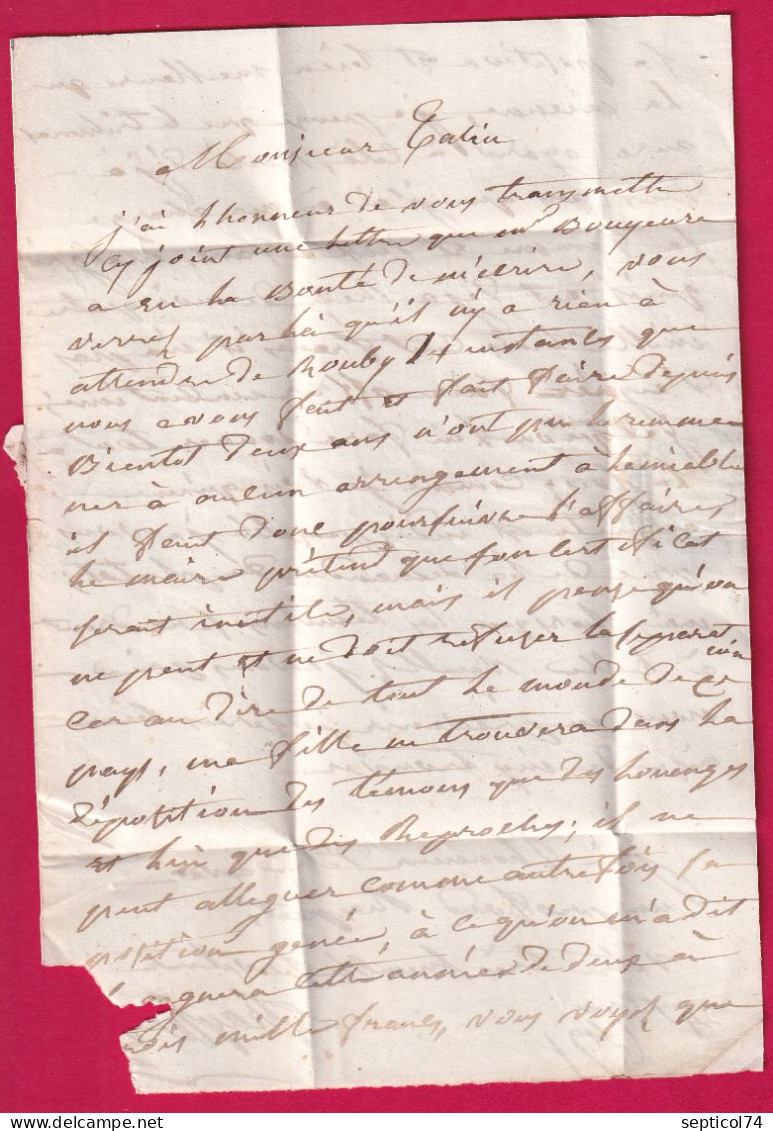 Monsieur Talin
j'ai lhonneur de vous transmettre
cy joint une lettre que mr Bouyeure
a eu la Bonté de m'ecrire, vous
verrez par là qu'il n'y a rien à
attendre de Rouby Les instances que
nous avons fait et fait faire depuis
Bientot deux ans n'ont pu le
ner à aucun arrengement à lamiable
il faut donc poursuivre l'affaires
le maire prétend que son certificat
serait inutile, mais il pense qu'on
ne peut et ne doit refuser la separation
car au dire de tout le monde de ce
pays, ma fille ne trouvera dans la
déposition des témoins que des louanges
et bien que des Reproches; il ne
peut alleguer comme autrefois sa
position genée, à ce qu'on m'a dit
gagnera cette année de deux à
ois mille francs, vous voyez que
septicol74